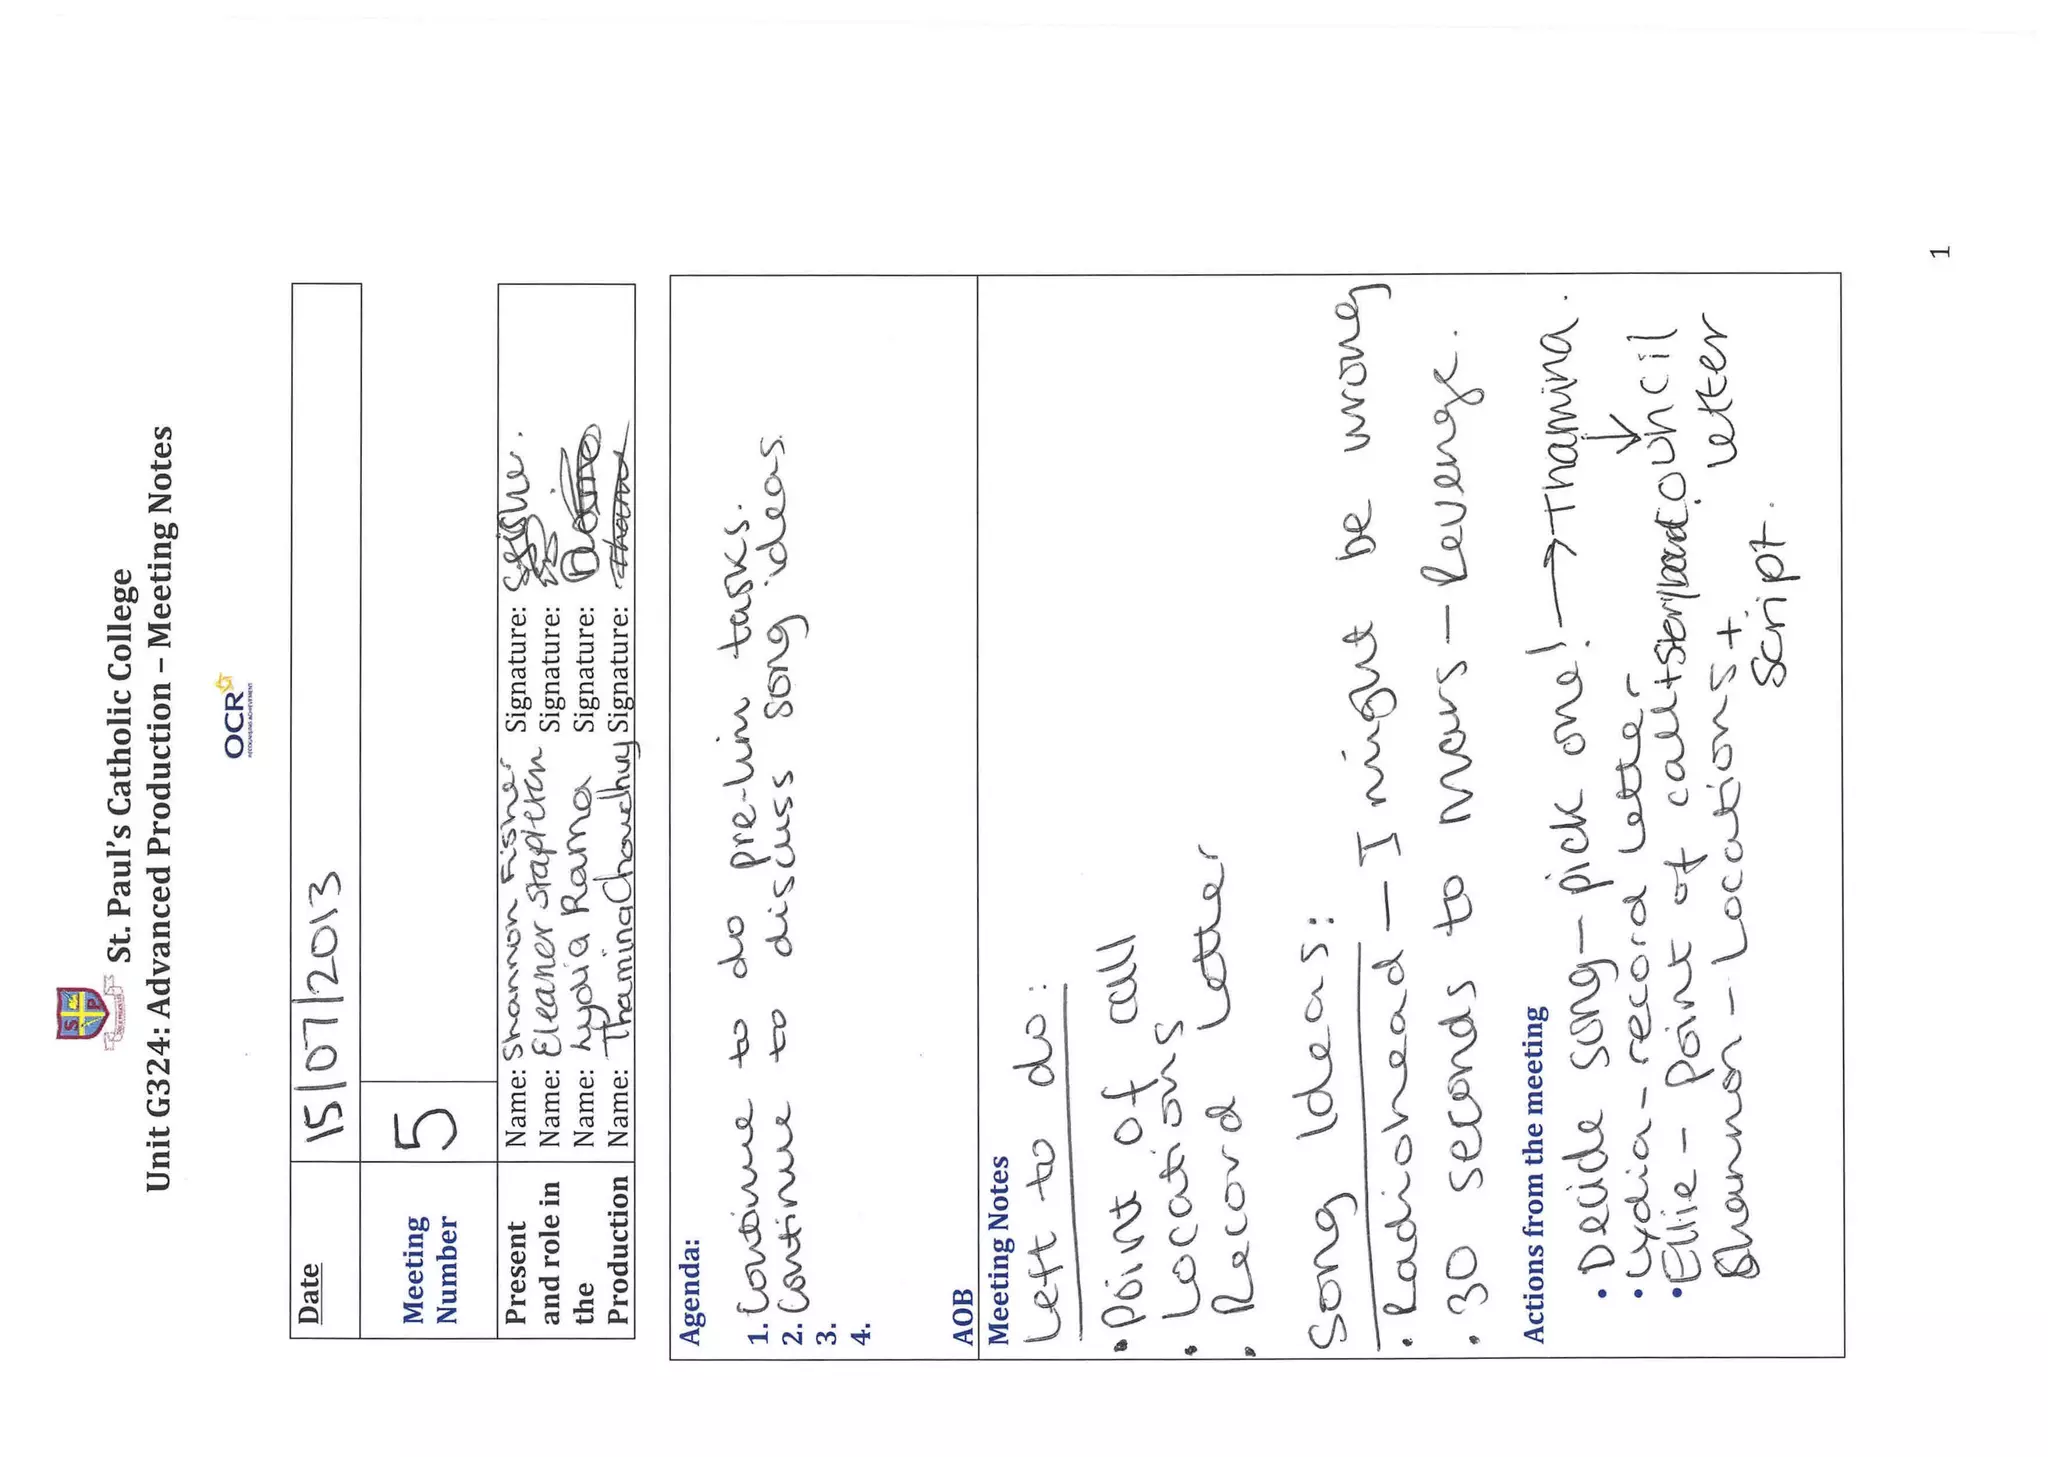 St. Paul's Catholic College
Unit G324: Advanced Production – Meeting Notes
OCR
RECOGNISING ACHIEVEMENT
Date 15/07/2013
Meeting Number 5
Present and role in the Production
Name: Shannon Fisher Signature:
Name: Eleanor Stapleton Signature:
Name: Lydia Rama Signature:
Name: Thamina Choudhury Signature:
Agenda:
1. Continue to do pre-lim tasks.
2. Continue to discuss song ideas.
3.
4.
AOB
Meeting Notes
Left to do:
• Point of call
• Locations
• Record Letter
Song Ideas:
• Radiohead – I might be wrong
• 30 seconds to mars – Revenge.
Actions from the meeting
• Decide song – pick one! → Thamina.
• Lydia – record letter. ↓
• Ellie – Point of call + Storyboard. council
Shannon – Locations + letter
Script.
1